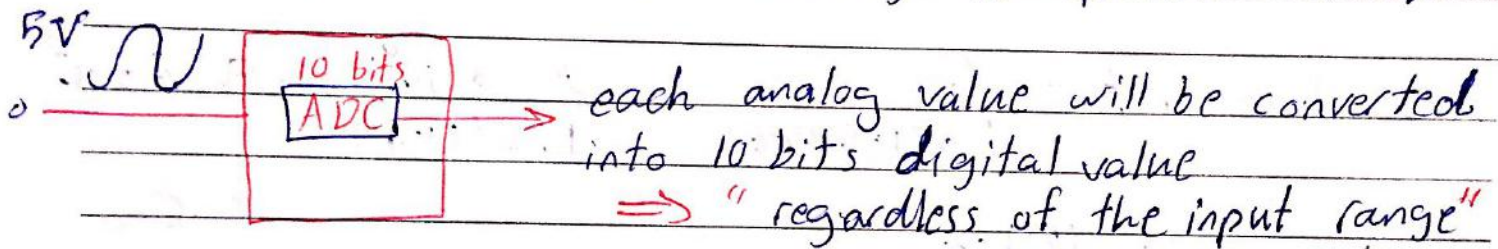 5V
10 bits
ADC
0
each analog value will be converted
into 10 bits digital value
⇒ "regardless of the input range"